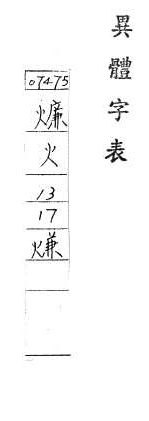 異體字表
07475
熑
火
13
17
㷙